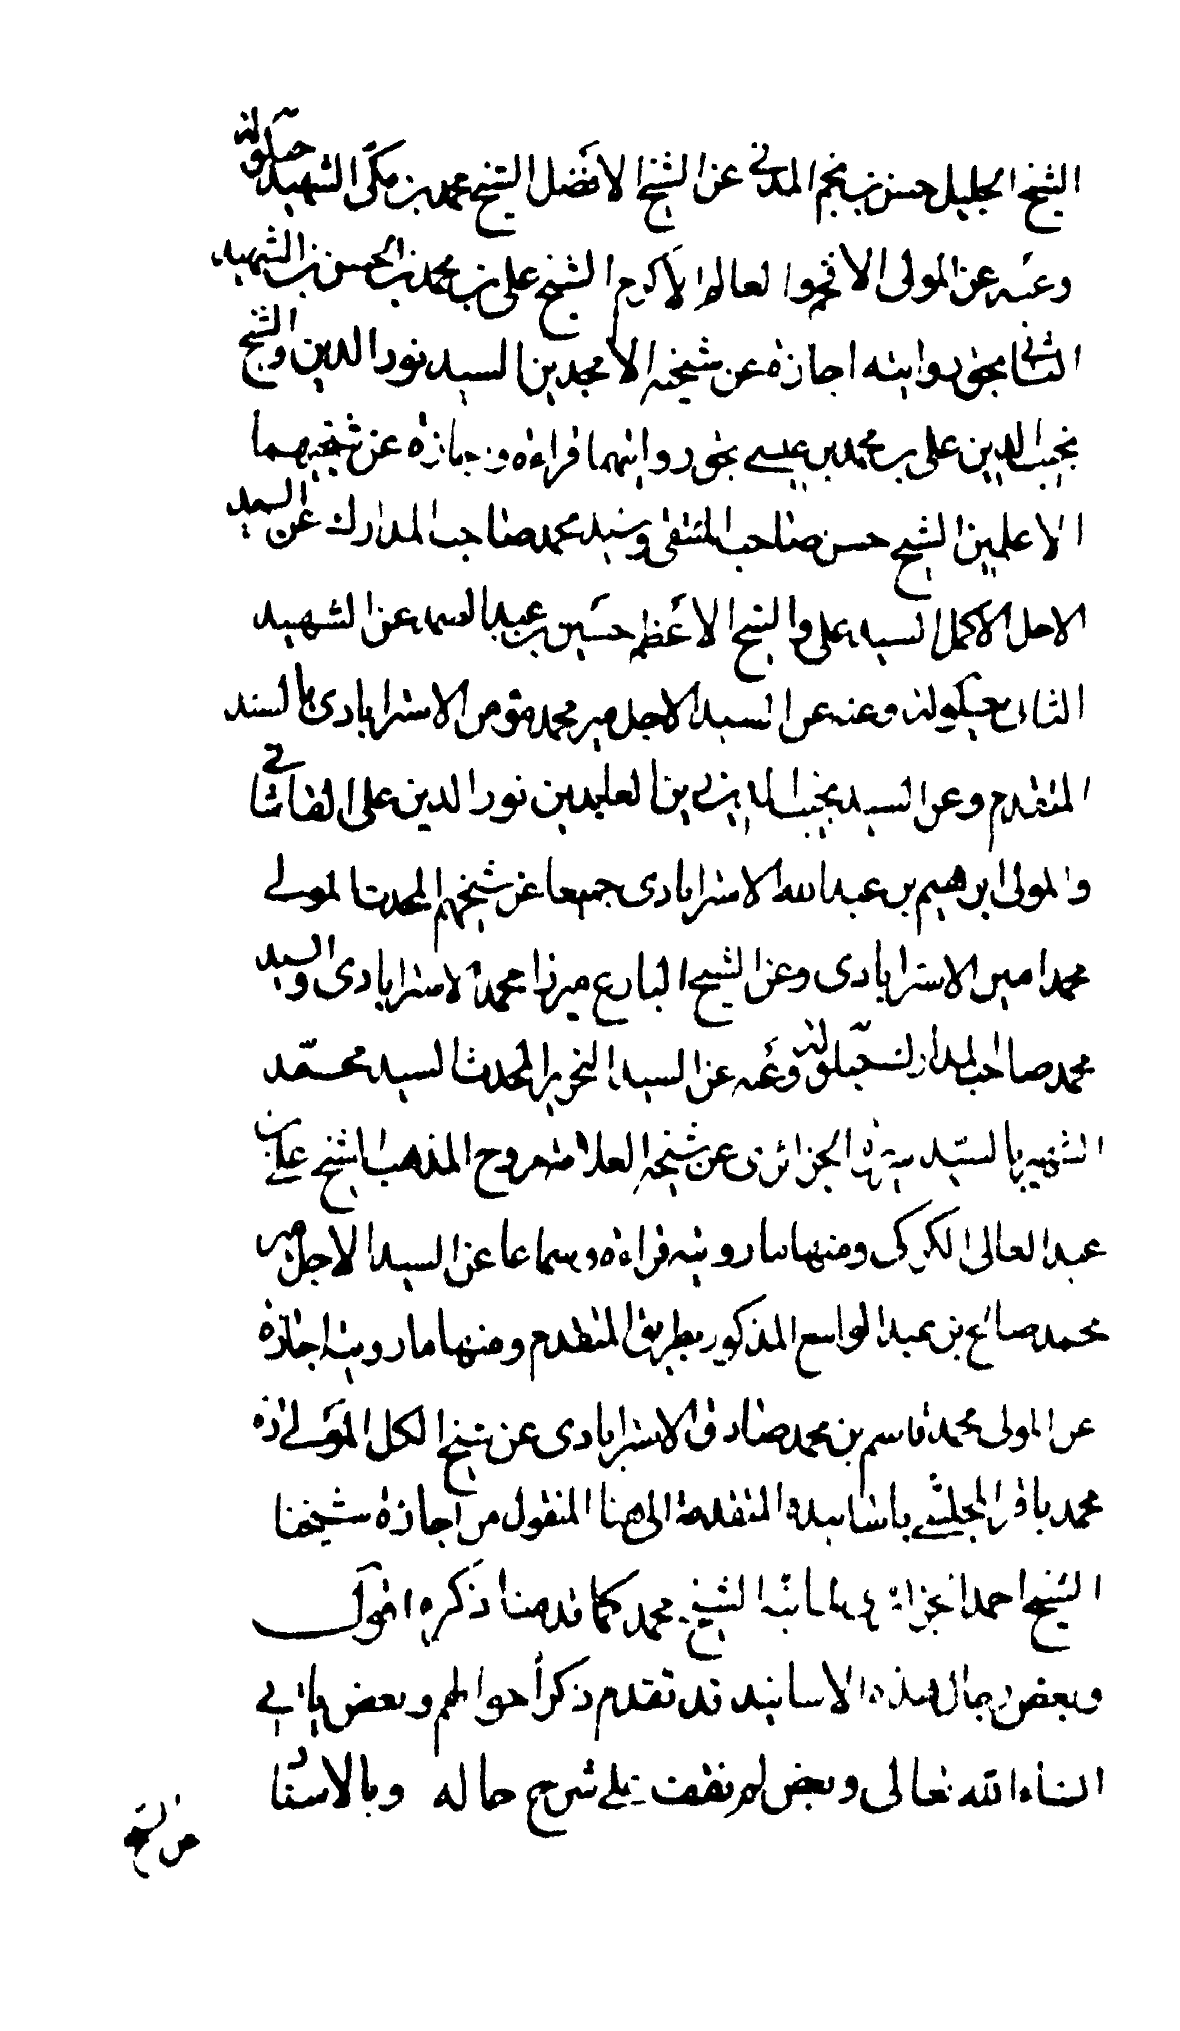 الشيخ الجليل حسن بن نجم المدني عن الشيخ الافضل الشيخ محمد بن مكي الشهيد
وعنه عن المولى الافخم والعالم الاكرم الشيخ علي بن محمد بن الحسن بن الشهيد
الثاني بحق روايته اجازة عن شيخيه الامجدين السيد نور الدين والشيخ
نجيب الدين علي بن محمد بن عيسى بحق روايتهما قراءة واجازة عن شيخيهما
الاعلمين الشيخ حسن صاحب المنتقى وسيد محمد صاحب المدارك عن السيد
الاجل الاكمل السيد علي والشيخ الاعظم حسين بن عبد الصمد عن الشهيد
الثاني وعنه عن السيد الاجل مير محمد مؤمن الاسترابادي بالسند
المتقدم وعن السيد نجيب الدين بن زين العابدين نور الدين علي القاشاني
والمولى ابرهيم بن عبد الله الاسترابادي جميعا عن شيخهم المحدث المولى
محمد امين الاسترابادي وعن الشيخ البارع ميرزا محمد الاسترابادي والسيد
محمد صاحب المدارك وعنه عن السيد النحرير المحدث السيد محمد
الشهير بالسيد الجزائري عن شيخه العلامة مروج المذهب الشيخ علي بن
عبد العالى الكركي ومنها ما رويته قراءة وسماعا عن السيد الاجل مير
محمد صالح بن عبد الواسع المذكور بطريق المتقدم ومنها ما رويته اجازة
عن المولى محمد قاسم بن محمد صادق الاسترابادي عن شيخ الكل المولى
محمد باقر المجلسي باسانيده المتقدمة الى هنا المنقول من اجازة شيخنا
الشيخ احمد الشيخ محمد كما قدمنا ذكره اقول
وبعض رجال هذه الاسانيد قد تقدم ذكر احوالهم وبعض ياتي
انشاء الله تعالى وبعض لم نقف على شرح حاله وبالاسناد
عن الشيخ